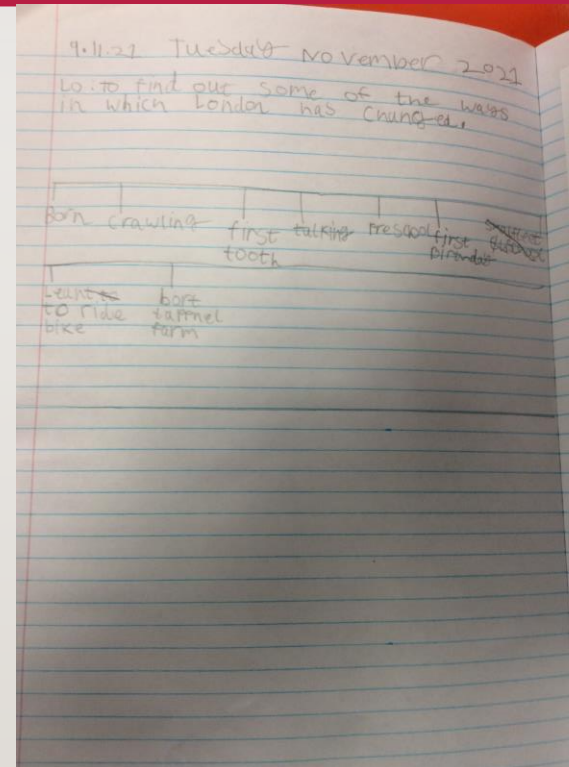 9.11.21 Tuesday November 2021
Lo. to find out some of the ways
in which London has Changed.
Born crawling first talking Preschool first
tooth Birthday
Leant to
to ride
bike
bort
farm